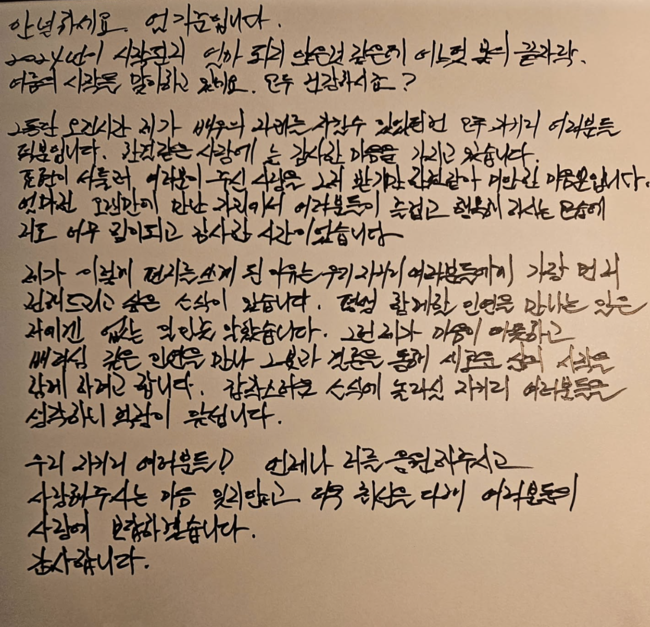 안녕하세요. 엄기준입니다.
2024년이 시작된지 얼마 되지 않은것 같은데 어느덧 봄의 끝자락.
여름의 시작을 맞이하고 있네요. 모두 건강하시죠?
그동안 오랜시간 제가 배우의 자리를 지킬수 있었던건 모두 자기리 여러분들
덕분입니다. 한결같은 사랑에 늘 감사한 마음을 가지고 있습니다.
표현이 서툴러 여러분이 주신 사랑을 그저 받기만 한것같아 미안한 마음뿐입니다.
얼마전 오랜만에 만난 자리에서 여러분들이 즐겁고 행복해 하시는 모습에
저도 너무 힘이되고 감사한 시간이었습니다
제가 이렇게 편지를 쓰게 된 이유는 우리 자기리 여러분들에게 가장 먼저
전해드리고 싶은 소식이 있습니다. 평생 함께할 인연을 만나는 일은
저에겐 없는 일인줄 알았습니다. 그런 제가 마음이 따뜻하고
배려심 깊은 인연을 만나 그분과 결혼을 통해 새로운 삶의 시작을
함께 하려고 합니다. 갑작스러운 소식에 놀라실 자기리 여러분들을
생각하니 떨립니다.
우리 자기리 여러분들! 언제나 저를 응원해주시고
사랑해주시는 마음 잊지않고 더욱 최선을 다해 여러분들의
사랑에 보답하겠습니다.
감사합니다.